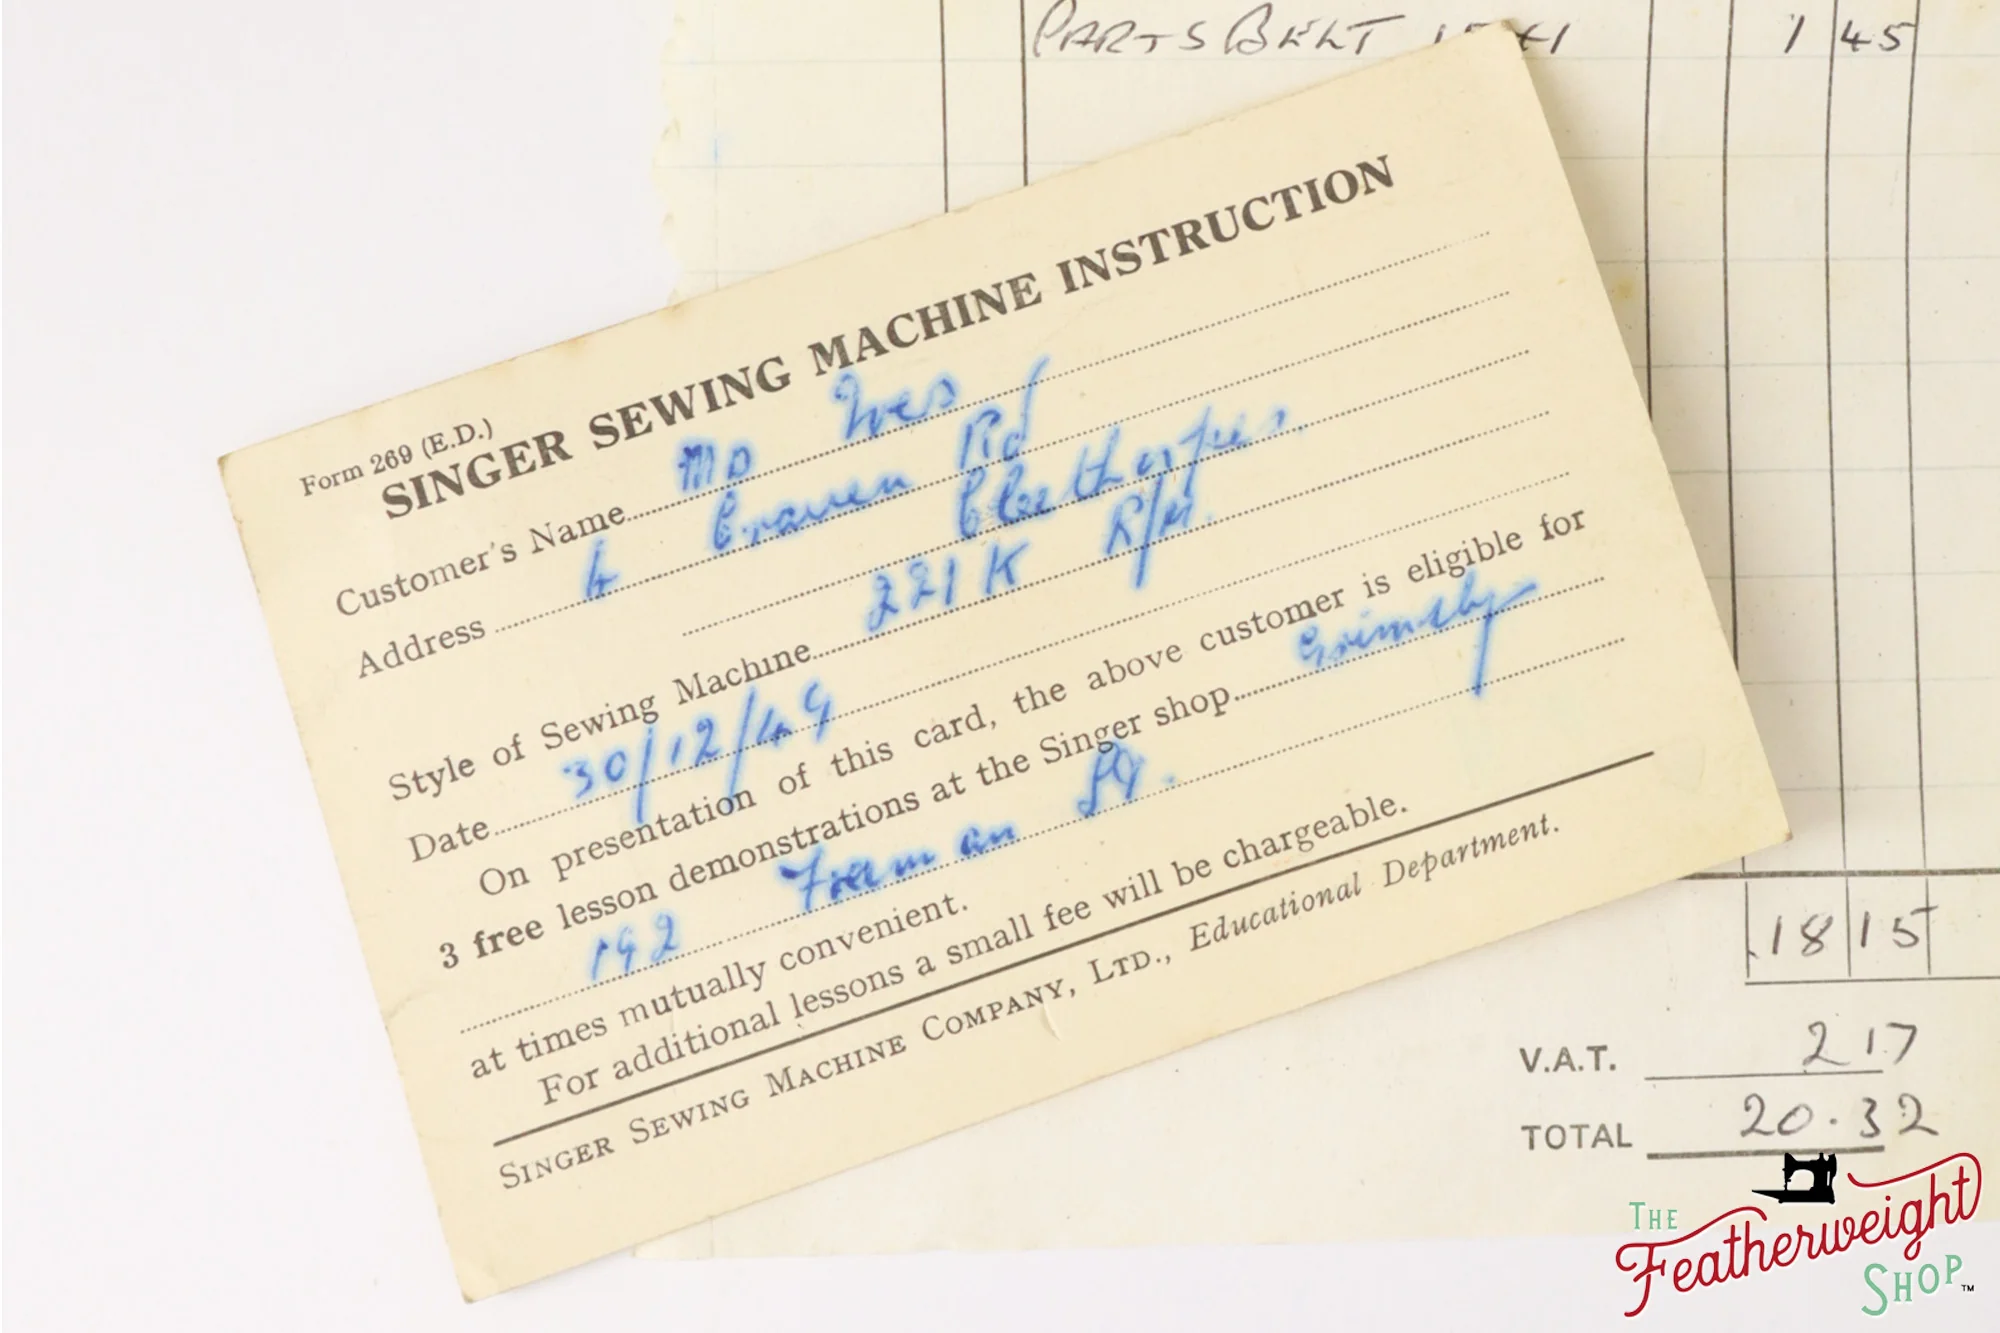 PARTS BELT 1 45
Form 269 (E.D.)
SINGER SEWING MACHINE INSTRUCTION
Customer's Name Ives
Address 4 Craven Rd
Cleethorpes.
Style of Sewing Machine 221 K R/M.
Date 30/12/49
On presentation of this card, the above customer is eligible for
3 free lesson demonstrations at the Singer shop Grimsby
192 Freeman St.
at times mutually convenient.
For additional lessons a small fee will be chargeable.
SINGER SEWING MACHINE COMPANY, LTD., Educational Department.
18 15
V.A.T. 2 17
TOTAL 20.32
THE
Featherweight
SHOP™